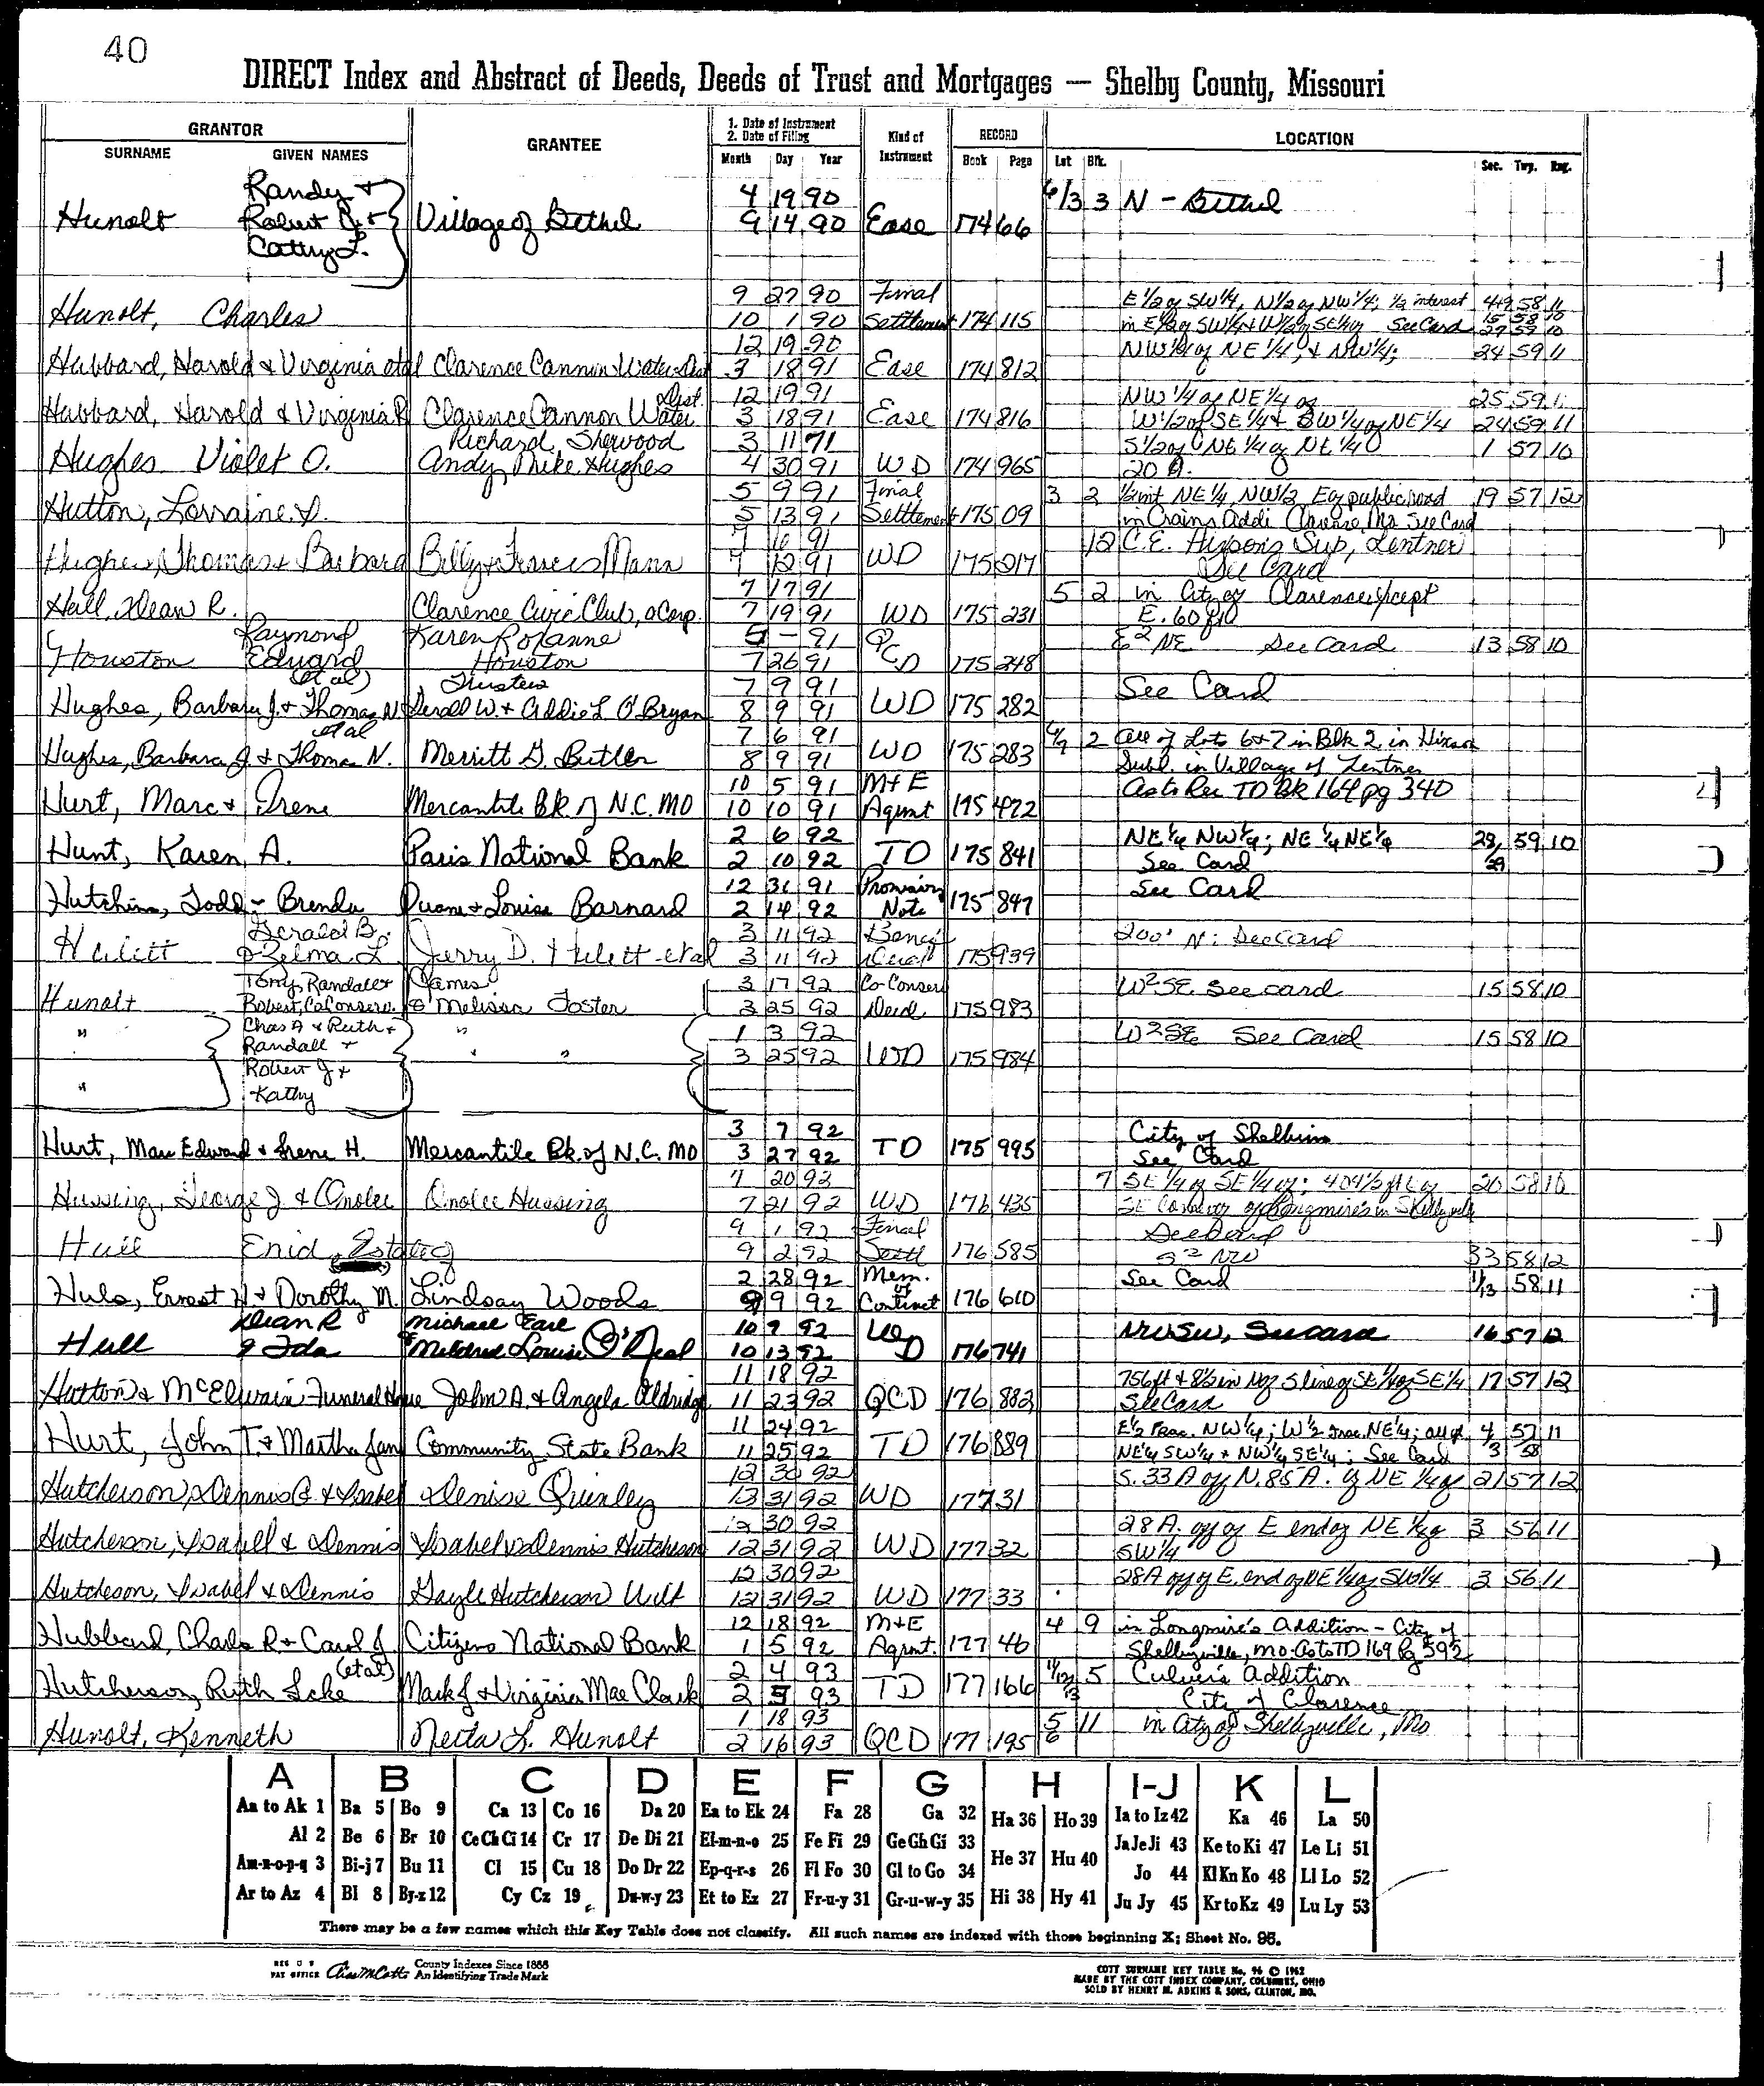 40
DIRECT Index and Abstract of Deeds, Deeds of Trust and Mortgages — Shelby County, Missouri
GRANTOR GRANTEE 1. Date of Instrument 2. Date of Filing Kind of Instrument RECORD LOCATION
SURNAME GIVEN NAMES Month Day Year Book Page Lot Blk. Sec. Twp. Rng.
Hunolt Randy & Robert J. & Cathy L. Village of Bethel 4 19 90 Ease 174 66 6/3 3 N - Bethel
9 14 90
Hunolt, Charles 9 27 90 Final E 1/2 of SW 1/4, N 1/2 of NW 1/4; 1/2 interest
10 1 90 Settlement 174 115 in E 1/2 of SW 1/4 & W 1/2 of SE 1/4 of See Card
Hubbard, Harold & Virginia etal Clarence Cannon Water Dist 12 19 90 NW 1/4 of NE 1/4; & NW 1/4; 24 59 11
3 18 91 Ease 174 812
Hubbard, Harold & Virginia R Clarence Cannon Water Dist. 12 19 91 NW 1/4 of NE 1/4 of 25 59 11
3 18 91 Ease 174 816 W 1/2 of SE 1/4 & SW 1/4 of NE 1/4 24 59 11
Hughes Violet O. Richard, Sherwood 3 11 71 S 1/2 of NE 1/4 of NE 1/4 1 57 10
Andy, Mike Hughes 4 30 91 WD 174 965 20 A.
Hutton, Lorraine 5 9 91 Final 3 2 1/2 int NE 1/4, NW 1/2, E of public road 19 57 12
5 13 91 Settlement 175 09 in Crains Addi Clarence, Mo See Card
Hughes, Thomas & Barbara Billy & Frances Mann 7 6 91 12 C.E. Sub, Lentner
7 12 91 WD 175 217 See Card
Hull, Dean R. Clarence Civic Club, a Corp. 7 17 91 5 2 in City of Clarence except
7 19 91 WD 175 231 E. 60 ft
Houston Raymond Edward (et al) Karen Roxanne Houston Trustees 5 - 91 QCD E2 NE See Card 13 58 10
7 26 91 175 248
Hughes, Barbara J. & Thomas N. etal Derall W. & Addie L O'Bryan 7 9 91 See Card
8 9 91 WD 175 282
Hughes, Barbara J. & Thomas N. Merritt G. Butler 7 6 91 6/7 2 All of Lots 6 & 7 in Blk 2 in Hixson
8 9 91 WD 175 283 Subd. in Village of Lentner
Hurt, Marc & Irene Mercantile Bk. of N.C. MO 10 5 91 M + E As to Rec TD Bk 164 pg 340
10 10 91 Agmt 175 472
Hunt, Karen A. Paris National Bank 2 6 92 NE 1/4 NW 1/4; NE 1/4 NE 1/4 28/29 59 10
2 10 92 TD 175 841 See Card
Hutchins, Todd - Brenda Duane & Louise Barnard 12 31 91 Promisory See Card
2 14 92 Note 175 847
Gerald B. & Zelma L. Jerry D. etal 3 11 92 Benef 200' N; See Card
3 11 92 Deed 175 939
Hunolt Tony, Randall & Robert, CoConserv. James & Melissa Foster 3 17 92 Co-Conserv W2 SE See card 15 58 10
3 25 92 Deed 175 983
" Chas A & Ruth & Randall & Robert J & Kathy " " 1 3 92 W2 SE See Card 15 58 10
3 25 92 WD 175 984
Hurt, Marc Edward & Irene H. Mercantile Bk. of N.C. MO 3 7 92 City of Shelbina
3 27 92 TD 175 995 See Card
Hussing, George J & Onolee Onolee Hussing 7 20 92 7 SE 1/4 of SE 1/4 of; 404 1/2 ft E of 20 58 10
7 21 92 WD 176 435 SE Corner of Longmire's in Shelbyville
See Card
Hull Enid, Estate of 9 1 92 Final
9 2 92 Settl 176 585 S2 NW 33 58 12
Huls, Ernest H & Dorothy M. Lindsay Woods 2 28 92 Mem. of See Card 1/13 58 11
9 9 92 Contract 176 610
Hull Dean R & Ida Michael Earl & Mildred Louise O'Neal 10 9 92 WD NW SW, See card 16 57 12
10 13 92 176 741
Hutton & McElwain Funeral Home John A. & Angela Aldridge 11 18 92 756 ft & 8 1/2 in N of S line of SE 1/4 of SE 1/4 17 57 12
11 23 92 QCD 176 882 See Card
Hurt, John T. & Martha Jane Community State Bank 11 24 92 E 1/2 Frac. NW 1/4; W 1/2 Frac. NE 1/4; all of 4/3 57 11
11 25 92 TD 176 889 NE 1/4 SW 1/4 & NW 1/4 SE 1/4; See Card 58
Hutcherson, Dennis & Isabel Denise Quinley 12 30 92 S. 33 A off N. 85 A. of NE 1/4 of 21 57 12
12 31 92 WD 177 31
Hutcherson, Isabell & Dennis Isabel & Dennis Hutcherson 12 30 92 28 A. off of E end of NE 1/4 of 3 56 11
12 31 92 WD 177 32 SW 1/4
Hutcheson, Isabel & Dennis Gayle Hutcherson Wilt 12 30 92 28 A off of E. end of NE 1/4 of SW 1/4 3 56 11
12 31 92 WD 177 33
Hubbard, Charles R & Carol J. Citizens National Bank 12 18 92 M + E 4 9 in Longmire's Addition - City of
1 5 92 Agmt. 177 46 Shelbyville, Mo. As to TD 169 Pg 592
Hutcherson, Ruth Icke (etal) Mark J & Virginia Mae Clark 2 4 93 11/12/13 5 Culver's Addition
2 5 93 TD 177 166 City of Clarence
Hunolt, Kenneth Necta L. Hunolt 1 18 93 5/6 11 in City of Shelbyville, Mo
2 16 93 QCD 177 195
A B C D E F G H I-J K L
Aa to Ak 1 Ba 5 Bo 9 Ca 13 Co 16 Da 20 Ea to Ek 24 Fa 28 Ga 32 Ha 36 Ho 39 Ia to Iz 42 Ka 46 La 50
Al 2 Be 6 Br 10 Ce Ch Ci 14 Cr 17 De Di 21 El-m-n-o 25 Fe Fi 29 Ge Gh Gi 33 He 37 Hu 40 Ja Je Ji 43 Ke to Ki 47 Le Li 51
Am-n-o-p-q 3 Bi-j 7 Bu 11 Cl 15 Cu 18 Do Dr 22 Ep-q-r-s 26 Fl Fo 30 Gl to Go 34 Jo 44 Kl Kn Ko 48 Ll Lo 52
Ar to Az 4 Bl 8 By-z 12 Cy Cz 19 Du-w-y 23 Et to Ez 27 Fr-u-y 31 Gr-u-w-y 35 Hi 38 Hy 41 Ju Jy 45 Kr to Kz 49 Lu Ly 53
There may be a few names which this Key Table does not classify. All such names are indexed with those beginning X; Sheet No. 95.
REG U S PAT OFFICE County Indexes Since 1888 An Identifying Trade Mark
COTT SURNAME KEY TABLE No. 96 © 1962
MADE BY THE COTT INDEX COMPANY, COLUMBUS, OHIO
SOLD BY HENRY M. ADKINS & SONS, CLINTON, MO.